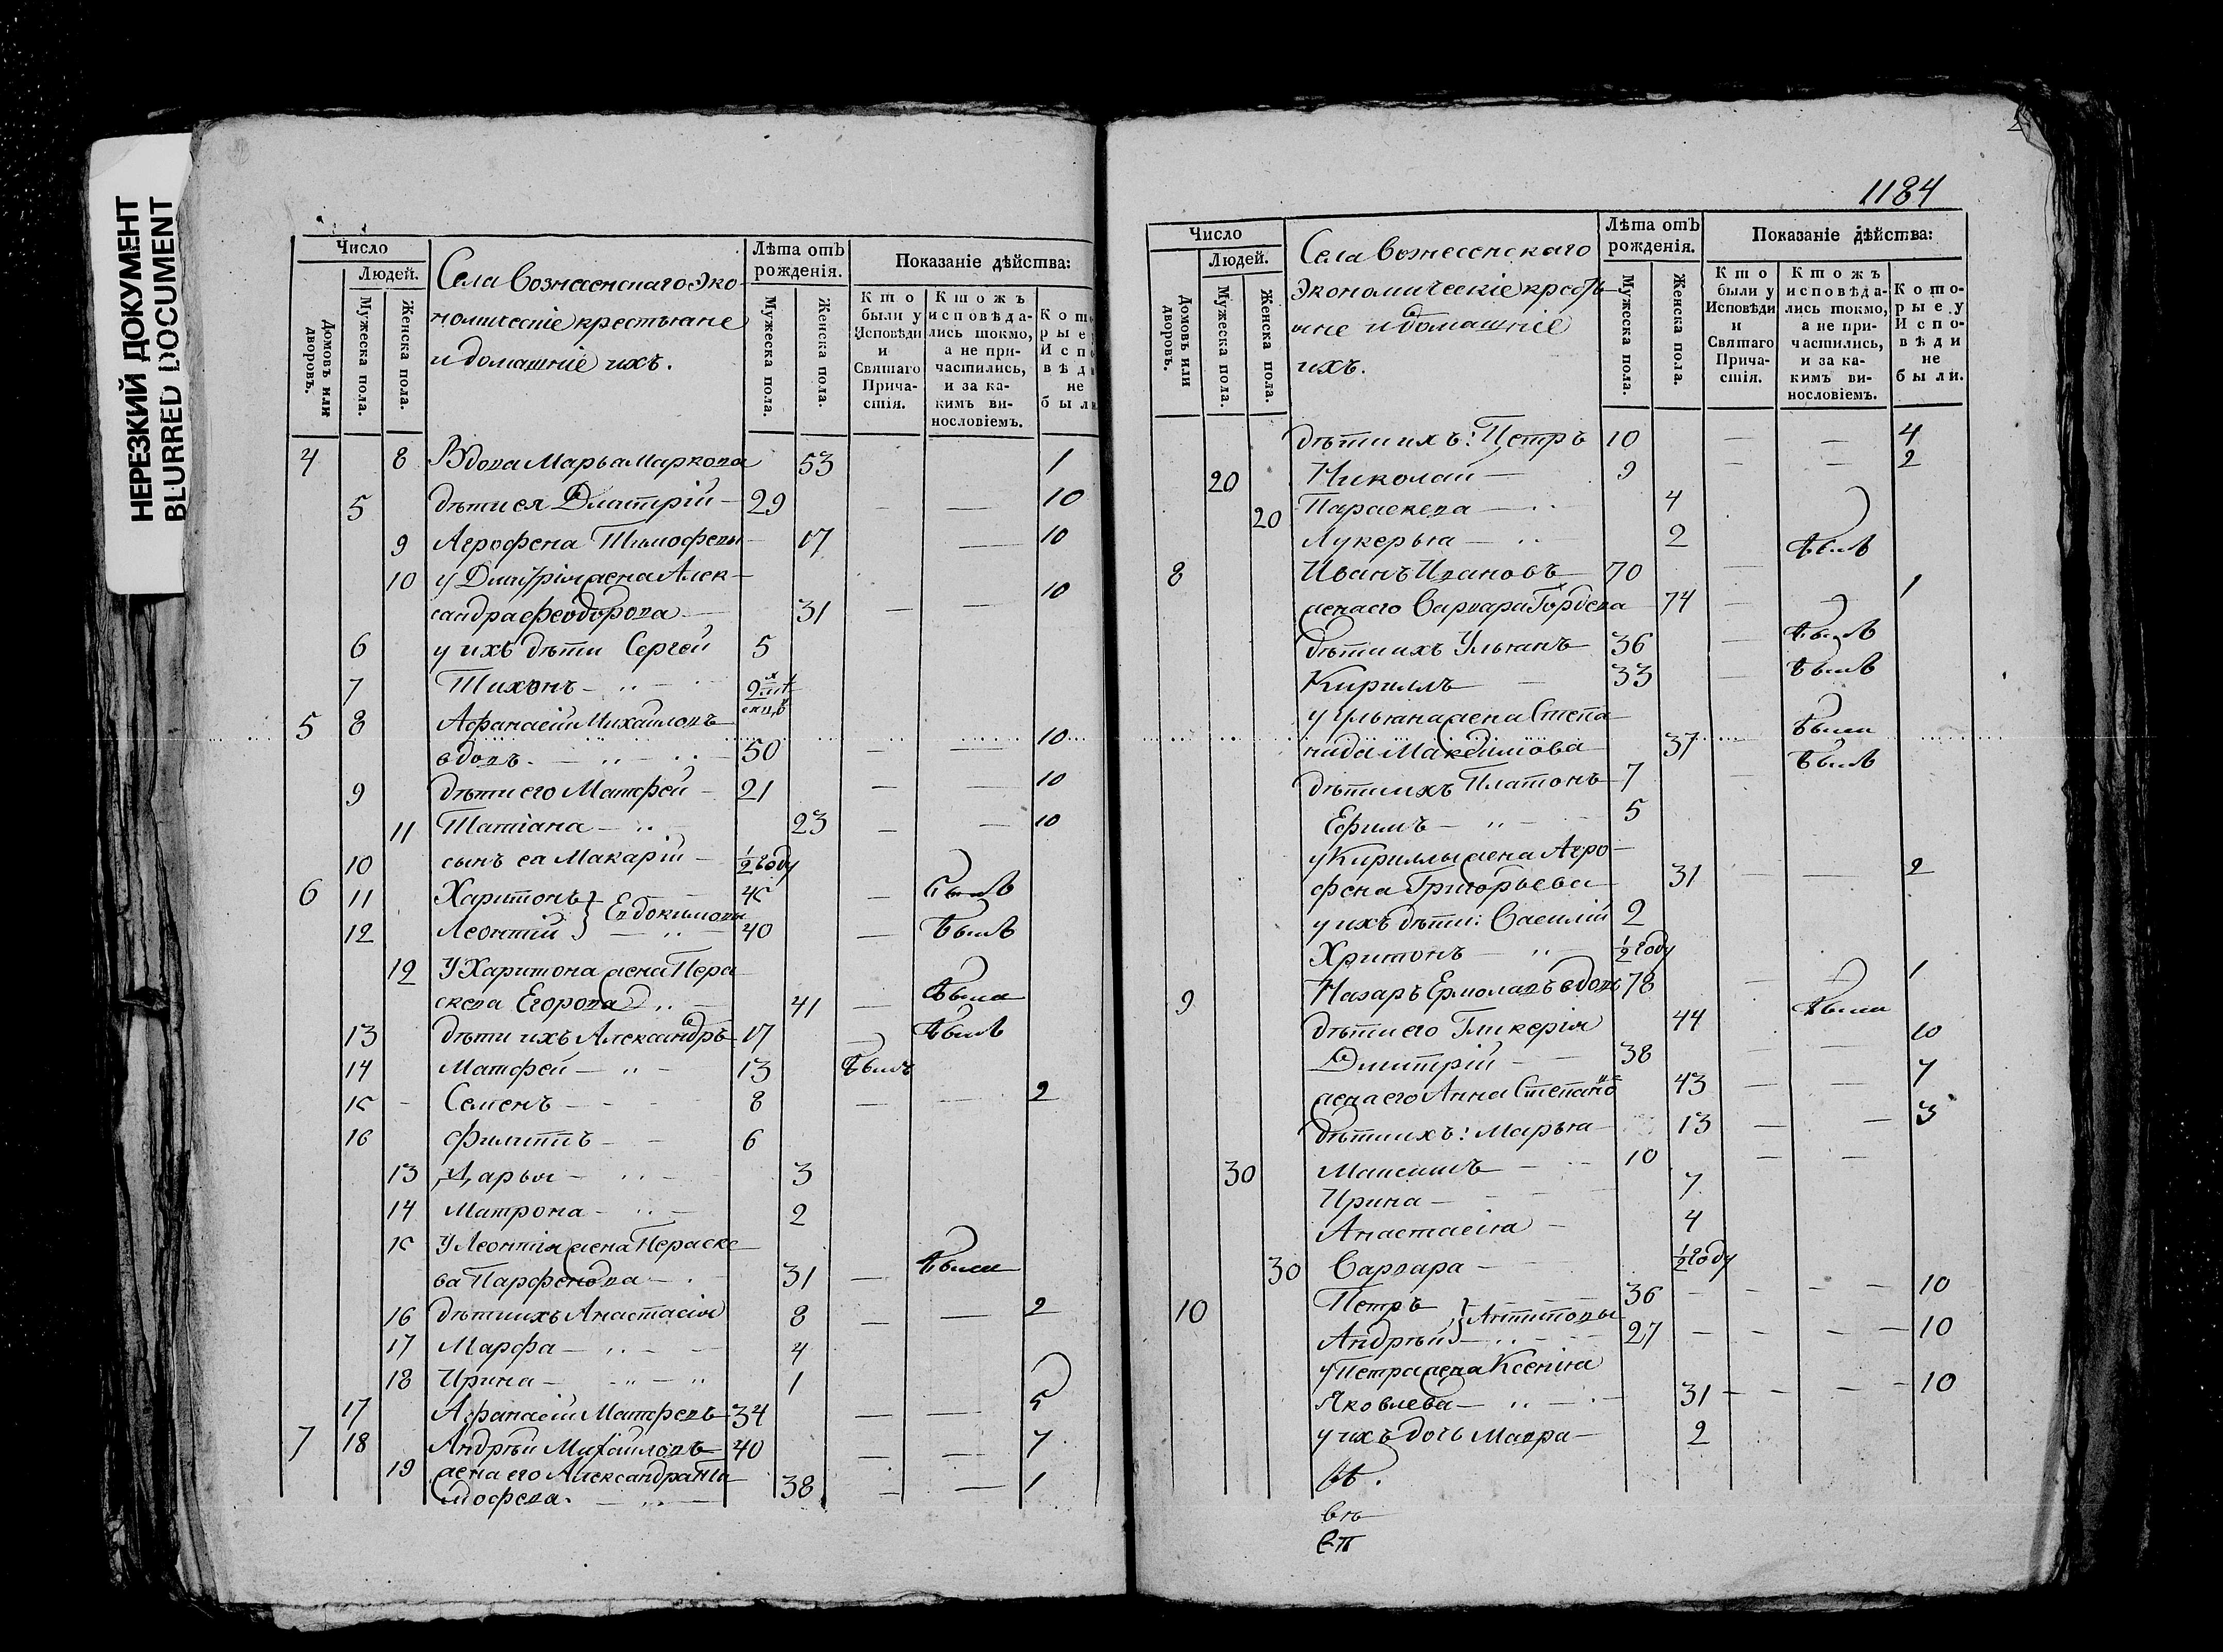 НЕРЕЗКИЙ ДОКУМЕНТ
BLURRED DOCUMENT
Число
Людей.
Домовъ или дворовъ.
Мужеска пола.
Женска пола.
Села Вознесенскаго Эко-
номическіе крестьяне
и домашніе ихъ.
Лѣта отъ рожденія.
Мужеска пола.
Женска пола.
Показаніе дѣйства:
Кто были у Исповѣди и Святаго Причастія.
Ктожъ исповѣдались токмо, а не причастились, и за какимъ винословіемъ.
4 8 Вдова Марья Маркова 53 1
5 дѣти ея Дмитрій — 29 — — 10
9 Агрофена Тимофевы — 17 — 10
10 у Дмитрія жена Алек-
сандра Феодорова — 31 — — 10
6 у ихъ дѣти Сергей 5
7 Тихонъ — 2
5 8 Афанасій Михайловъ
вдовъ — 50 — — 10
9 дѣти его Матфей — 21 — — 10
11 Татіана — 23 — — 10
10 сынъ ея Макарій — ½ году
6 11 Харитонъ } Евдокимовы 45 —
12 Леонтій } — 40 —
12 У Харитона жена Пера
скева Егорова — 41 —
13 дѣти ихъ Александръ 17 —
14 Матфей — 13
15 Семенъ — 8 — — 2
16 Филиппъ — 6
13 Дарья — 3
14 Матрона — 2
15 У Леонтія жена Пераске
ва Парфенова — 31 —
16 дѣти ихъ Анастасія 8 — — 2
17 Марфа — 4
18 Ирина — 1
17 Афанасій Матфевъ 34 — — 5
7 18 Андрѣй Михайловъ 40 — — 7
19 жена его Александра Ти
мофева — 38 — — 1
1184
Число
Людей.
Домовъ или дворовъ.
Мужеска пола.
Женска пола.
Села Вознесенскаго
Экономическіе кресть
яне и домашніе
ихъ.
Лѣта отъ рожденія.
Мужеска пола.
Женска пола.
Показаніе дѣйства:
Кто были у Исповѣди и Святаго Причастія.
Ктожъ исповѣдались токмо, а не причастились, и за какимъ винословіемъ.
Которые у Исповѣди не были.
дѣти ихъ: Петръ 10 — — 4
20 Николай — 9 — — 2
20 Параскева — 4
Лукерья — 2
8 Иванъ Ивановъ 70 —
жена его Варвара Гордева 74 — — 1
дѣти ихъ Ульянъ 36 —
Кириллъ — 33 —
у Ульяна жена Степа-
нида Максимова 37 —
дѣти ихъ Платонъ 7 —
Ефимъ — 5
у Кириллы жена Агро-
фена Григорьева 31 — — 2
у ихъ дѣти: Василій 2
Хритонъ — ½ году
9 Назаръ Ермолавъ вдовъ 78 — — 1
дѣти его Гликерія 44
Дмитрій — 38 — — 10
жена его Анна Степано 43 — — 7
дѣти ихъ: Марья 13 — — 3
30 Максимъ — 10 — —
Ирина — 7
Анастасія — 4
30 Варвара — ½ году
10 Петръ } Антиповы 36 — — 10
Андрѣй } — 27 — — 10
у Петра жена Ксенія
Яковлева — 31 — — 10
у ихъ дочь Мавра — 2